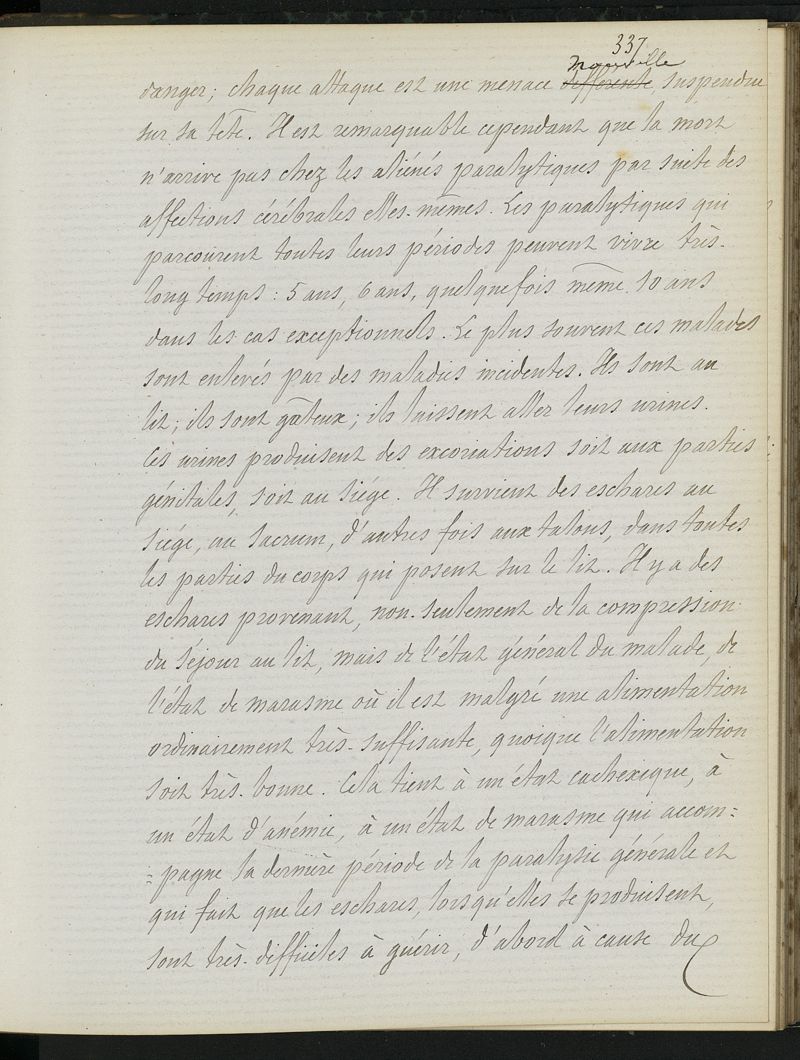 337
nouvelle
danger; chaque attaque est une menace différente, suspendue
sur sa tête. Il est remarquable cependant que la mort
n'arrive pas chez les aliénés paralytiques par suite des
affections cérébrales elles-mêmes. Les paralytiques qui
parcourent toutes leurs périodes peuvent vivre très-
long temps : 5 ans, 6 ans, quelquefois même 10 ans
dans les cas exceptionnels. Le plus souvent ces malades
sont enlevés par des maladies incidentes. Ils sont au
lit; ils sont gâteux; ils laissent aller leurs urines.
Ces urines produisent des excoriations soit aux parties
génitales, soit au siége. Il survient des eschares au
siége, au sacrum, d'autres fois aux talons, dans toutes
les parties du corps qui posent sur le lit. Il y a des
eschares provenant, non-seulement de la compression
du séjour au lit, mais de l'état général du malade, de
l'état de marasme où il est malgré une alimentation
ordinairement très-suffisante, quoique l'alimentation
soit très-bonne. Cela tient à un état cachexique, à
un état d'anémie, à un état de marasme qui accom=
=pagne la dernière période de la paralysie générale et
qui fait que les eschares, lorsqu'elles se produisent,
sont très-difficiles à guérir, d'abord à cause du